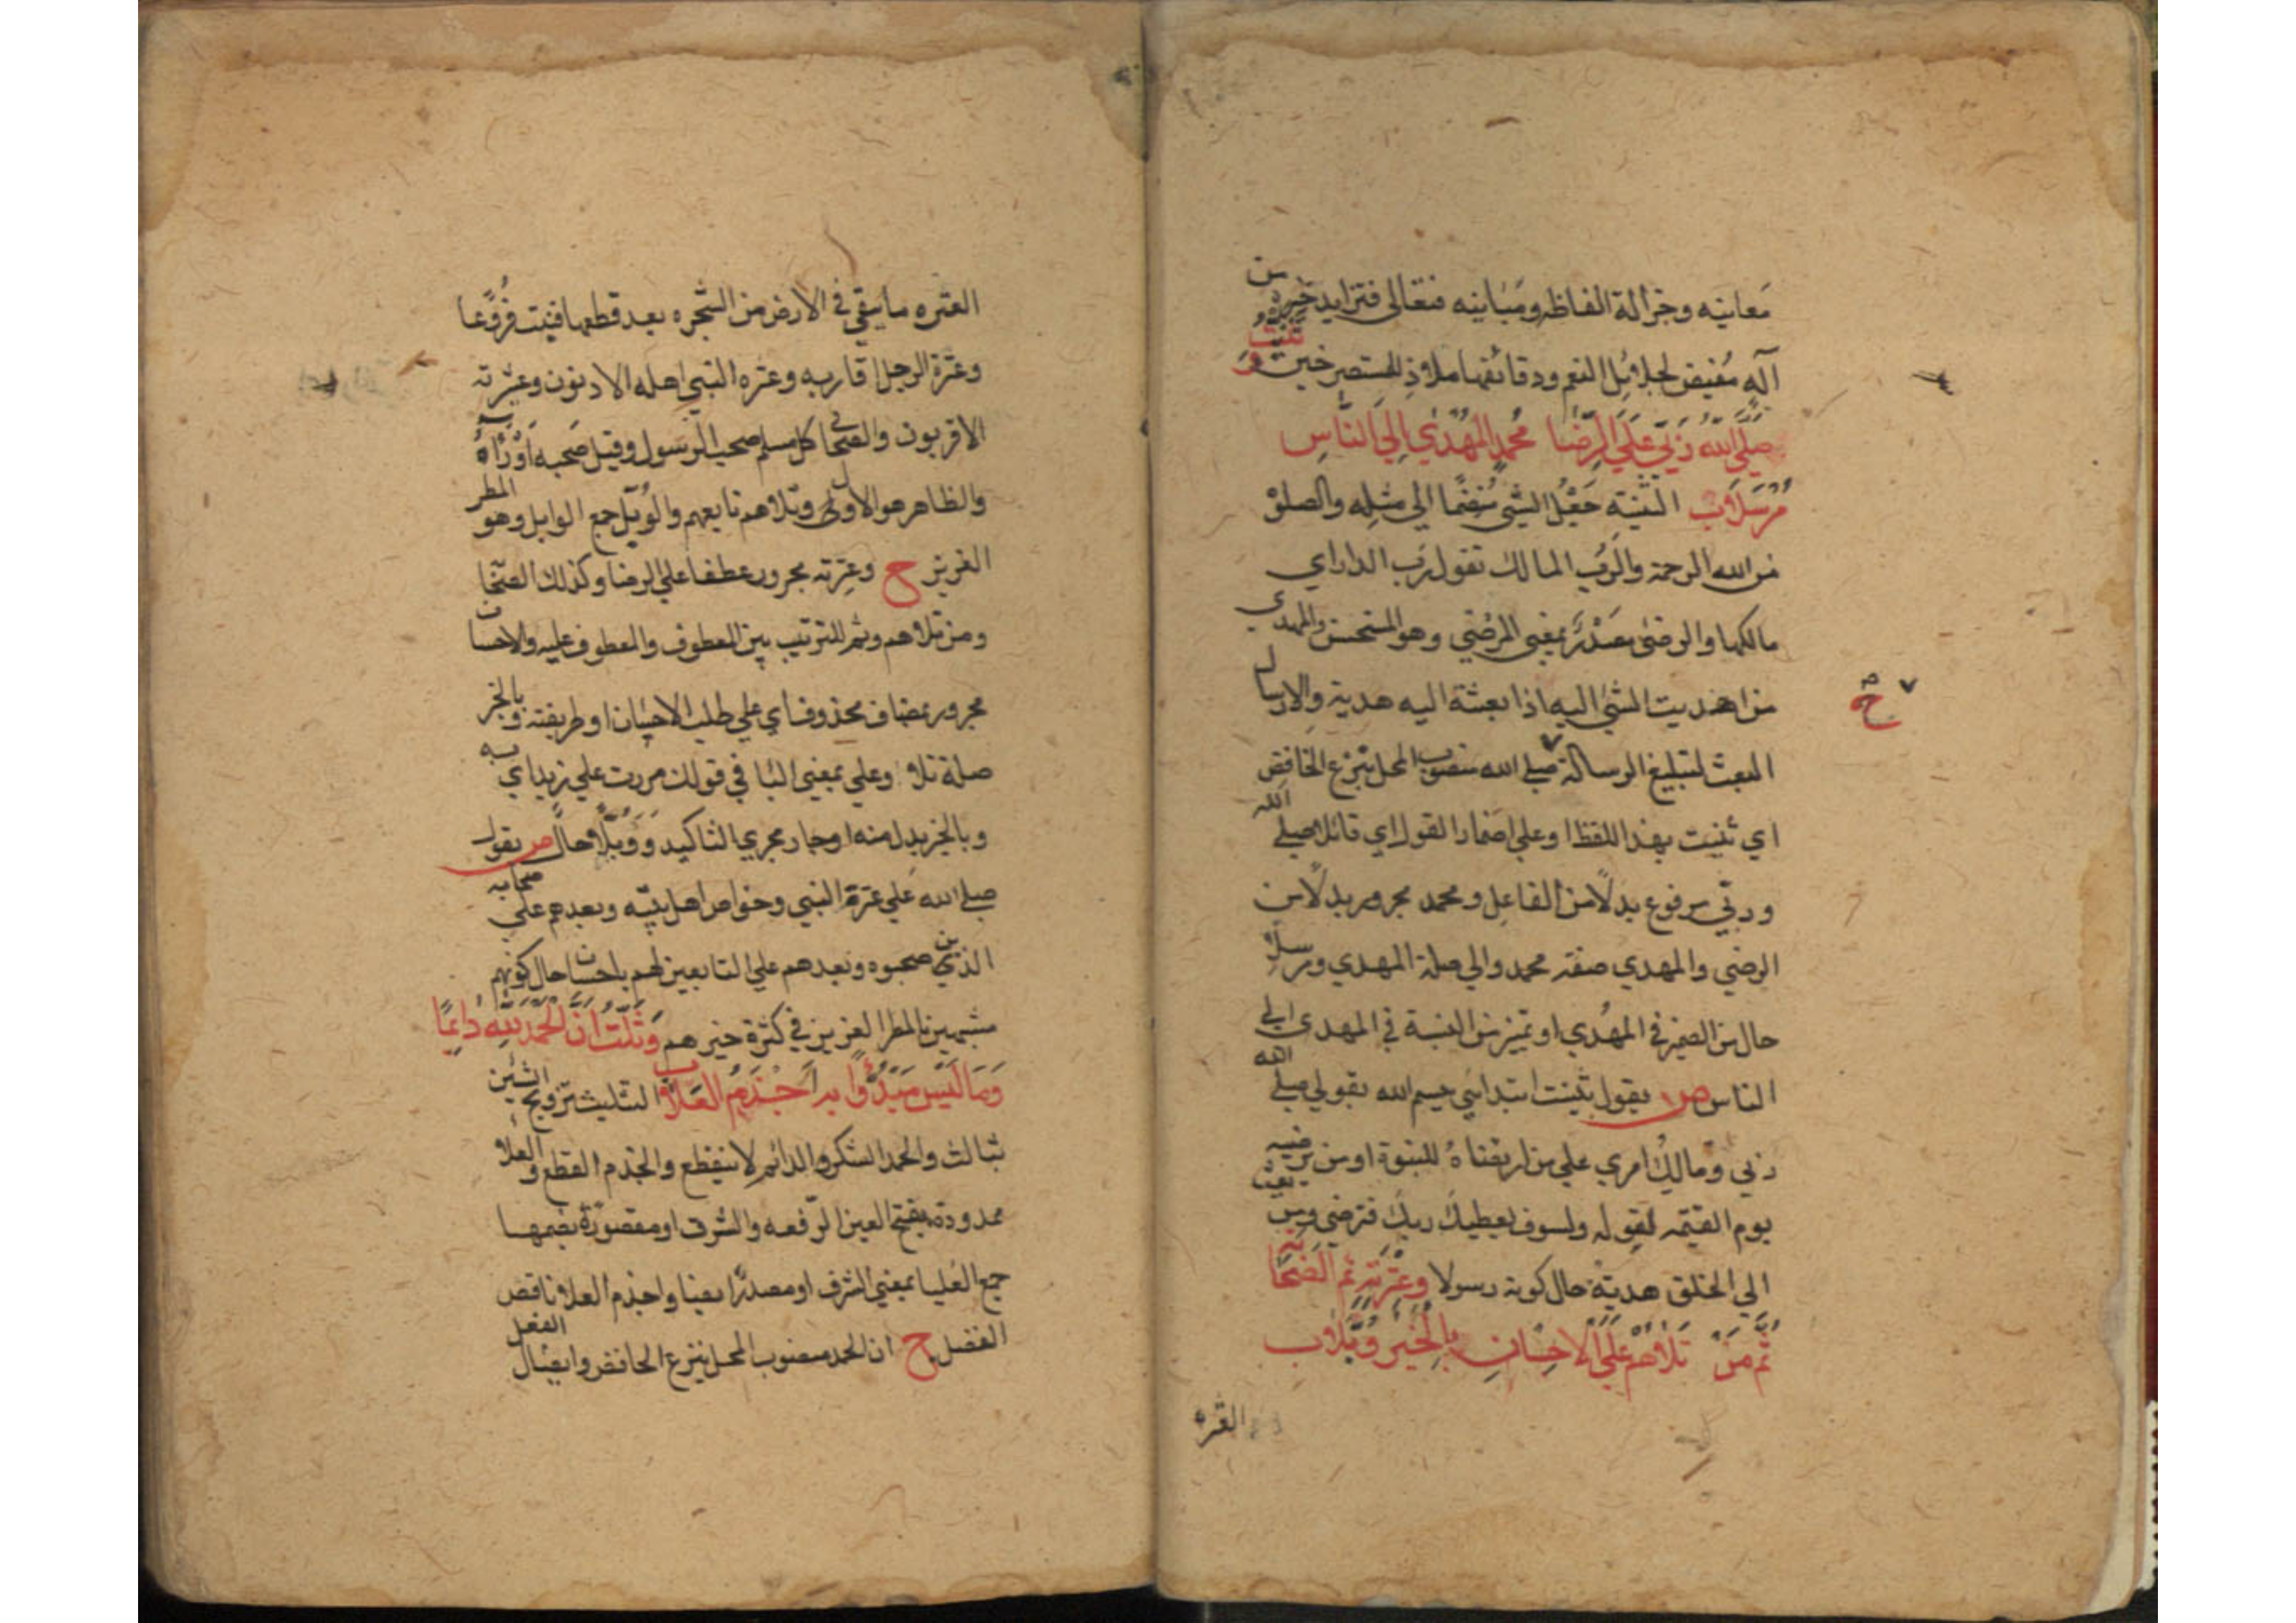 معانيه وجزالة الفاظه ومبانيه فتعالى فتزايد خيره من
آله مفيض لجلائل النعم ودقائقها ملاذ للمستصرخين وثنيت
صَلَّى الله رَبِّي عَلَى الرِّضَا مُحَمَّدٍ المُهْدَي إِلَى النَّاسِ
مُرْسَلَا ب التثنية جَعْلُ الشئ مُنضمًا الى مثله والصلوة
من الله الرحمة والرب المالك تقول رب الدار اي
مالكها والرضى مصدرٌ بمعنى المرضي وهو المستحسن والمهدي
من اهديت الشئ اليه اذا بعثته اليه هدية والارسال
البعث لتبليغ الرسالة صلى الله منصوب المحل بنزع الخافض
ح
اي ثنيت بهذا اللفظ او على اضمار القول اي قائلا صلى الله
وربّي مرفوع بدلًا من الفاعل ومحمد مجرور بدلًا من
الرضي والمهدي صفة محمد والى صلة المهدي ومرسلا
حال من الضمير في المهدي او تمييز من النسبة في المهدي الى
الناس ص يقول ثنيت ابتدائي ببسم الله بقولي صلى الله
ربي ومالك امري على من ارتضاه للنبوة او من يرضيه
يوم القيمة لقوله ولسوف يعطيك ربك فترضى ومن بعث
الى الخلق هدية حال كونه رسولا وعترته ثم الصحابة
ثُمَّ مَنْ تَلَاهُمْ عَلَى الإِحْسَانِ بِالْخَيْرِ وُبَّلَا ب
العتره
العتره ما يبقى في الارض من الشجره بعد قطعها فينبت فُرُوعا
وعترة الرجل اقاربه وعتره النبي اهله الادنون وعترته
الاقربون والصحابي كل مسلم صحب الرسول وقيل صحبه اَوْرَآهُ
والظاهر هو الاول وتلاهم تابعهم والوُبَّل جمع الوابل وهو المطر
الغزير ح وعترته مجرور عطفا على الرضا وكذلك الصحابة
ومن تلاهم وثم للترتيب بين المعطوف والمعطوف عليه والاحسان
مجرور بمضاف محذوف اي على طلب الاحسان او طريقته وبالخير
صلة تلا وعلى بمعنى البا في قولك مررت على زيد اي به
وبالخير بدل منه او جار مجري التاكيد وَوُبَّلًا حال ص يقول
صلى الله على عترة النبي وخواص اهل بيته وبعدهم على صحابه
الذين صحبوه وبعدهم على التابعين لهم باحسان حال كونهم
مشبهين بالمطر الغزير في كثرة خيرهم وَثَلَّثْتُ اَنَّ الحَمْدَ لِلّٰهِ دَائِمًا
وَمَا لَيْسَ مَبْدُوًا بِهِ اَجْذَمُ العَلَا ب التثليث تزويج الشئين
بثالث والحمد الشكر والدائم لا ينقطع والجذم القطع والعلا
ممدودة بفتح العين الرفعة والشرف او مقصورة بضمها
جمع العليا بمعنى الشرف او مصدرًا بعينا واجذم العلا ناقص
الفضل ح ان الحمد منصوب المحل بنزع الخافض وايصال الفعل